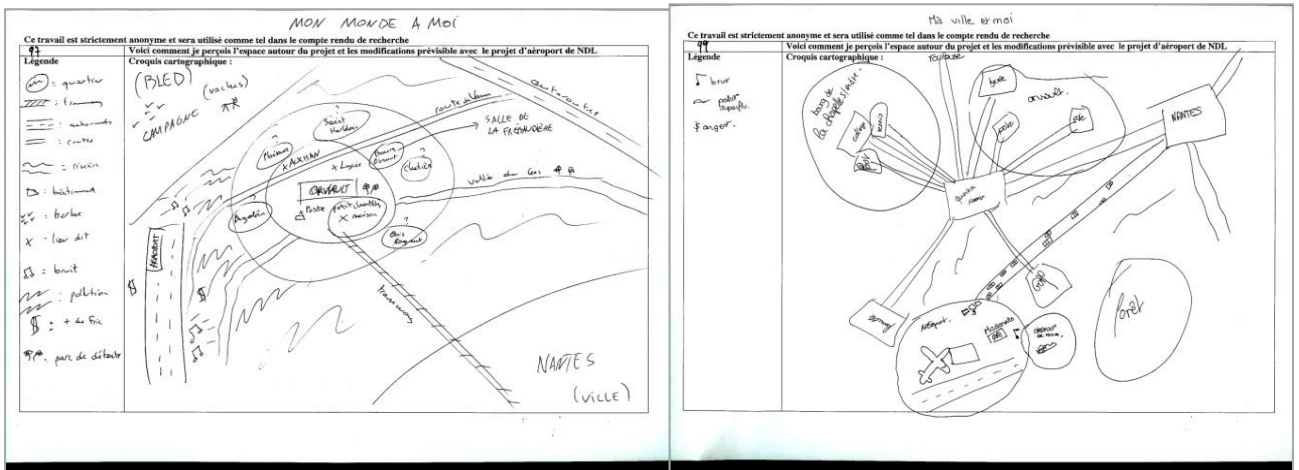 MON MONDE A MOI
Ce travail est strictement anonyme et sera utilisé comme tel dans le compte rendu de recherche
97
Voici comment je perçois l'espace autour du projet et les modifications prévisible avec le projet d'aéroport de NDL
Légende
Croquis cartographique :
= quartier
: tramway
: autoroute
= routes
= rivière
: bâtiment
: herbe
X = lieu dit
: bruit
: pollution
$ : + de fric
: parc de détente
(BLED)
(vaches)
CAMPAGNE
autoroutes
route de Vannes
SALLE DE
LA FRÉBAUDIÈRE
?
Plaisance
X AUCHAN
X Lycée
ORVAULT
Poste
Petit chantilly
X maison
Bois
Raguenet
vallée du Cens
AEROPORT
$
tramway
NANTES
(VILLE)
Ma ville et moi
Ce travail est strictement anonyme et sera utilisé comme tel dans le compte rendu de recherche
99
Voici comment je perçois l'espace autour du projet et les modifications prévisible avec le projet d'aéroport de NDL
Légende
Croquis cartographique :
bruit
$ argent.
Toulouse
bourg de
la chapelle s/ erdre.
collège
tennis
lycée
orvault.
NANTES
Aéroport.
Forêt